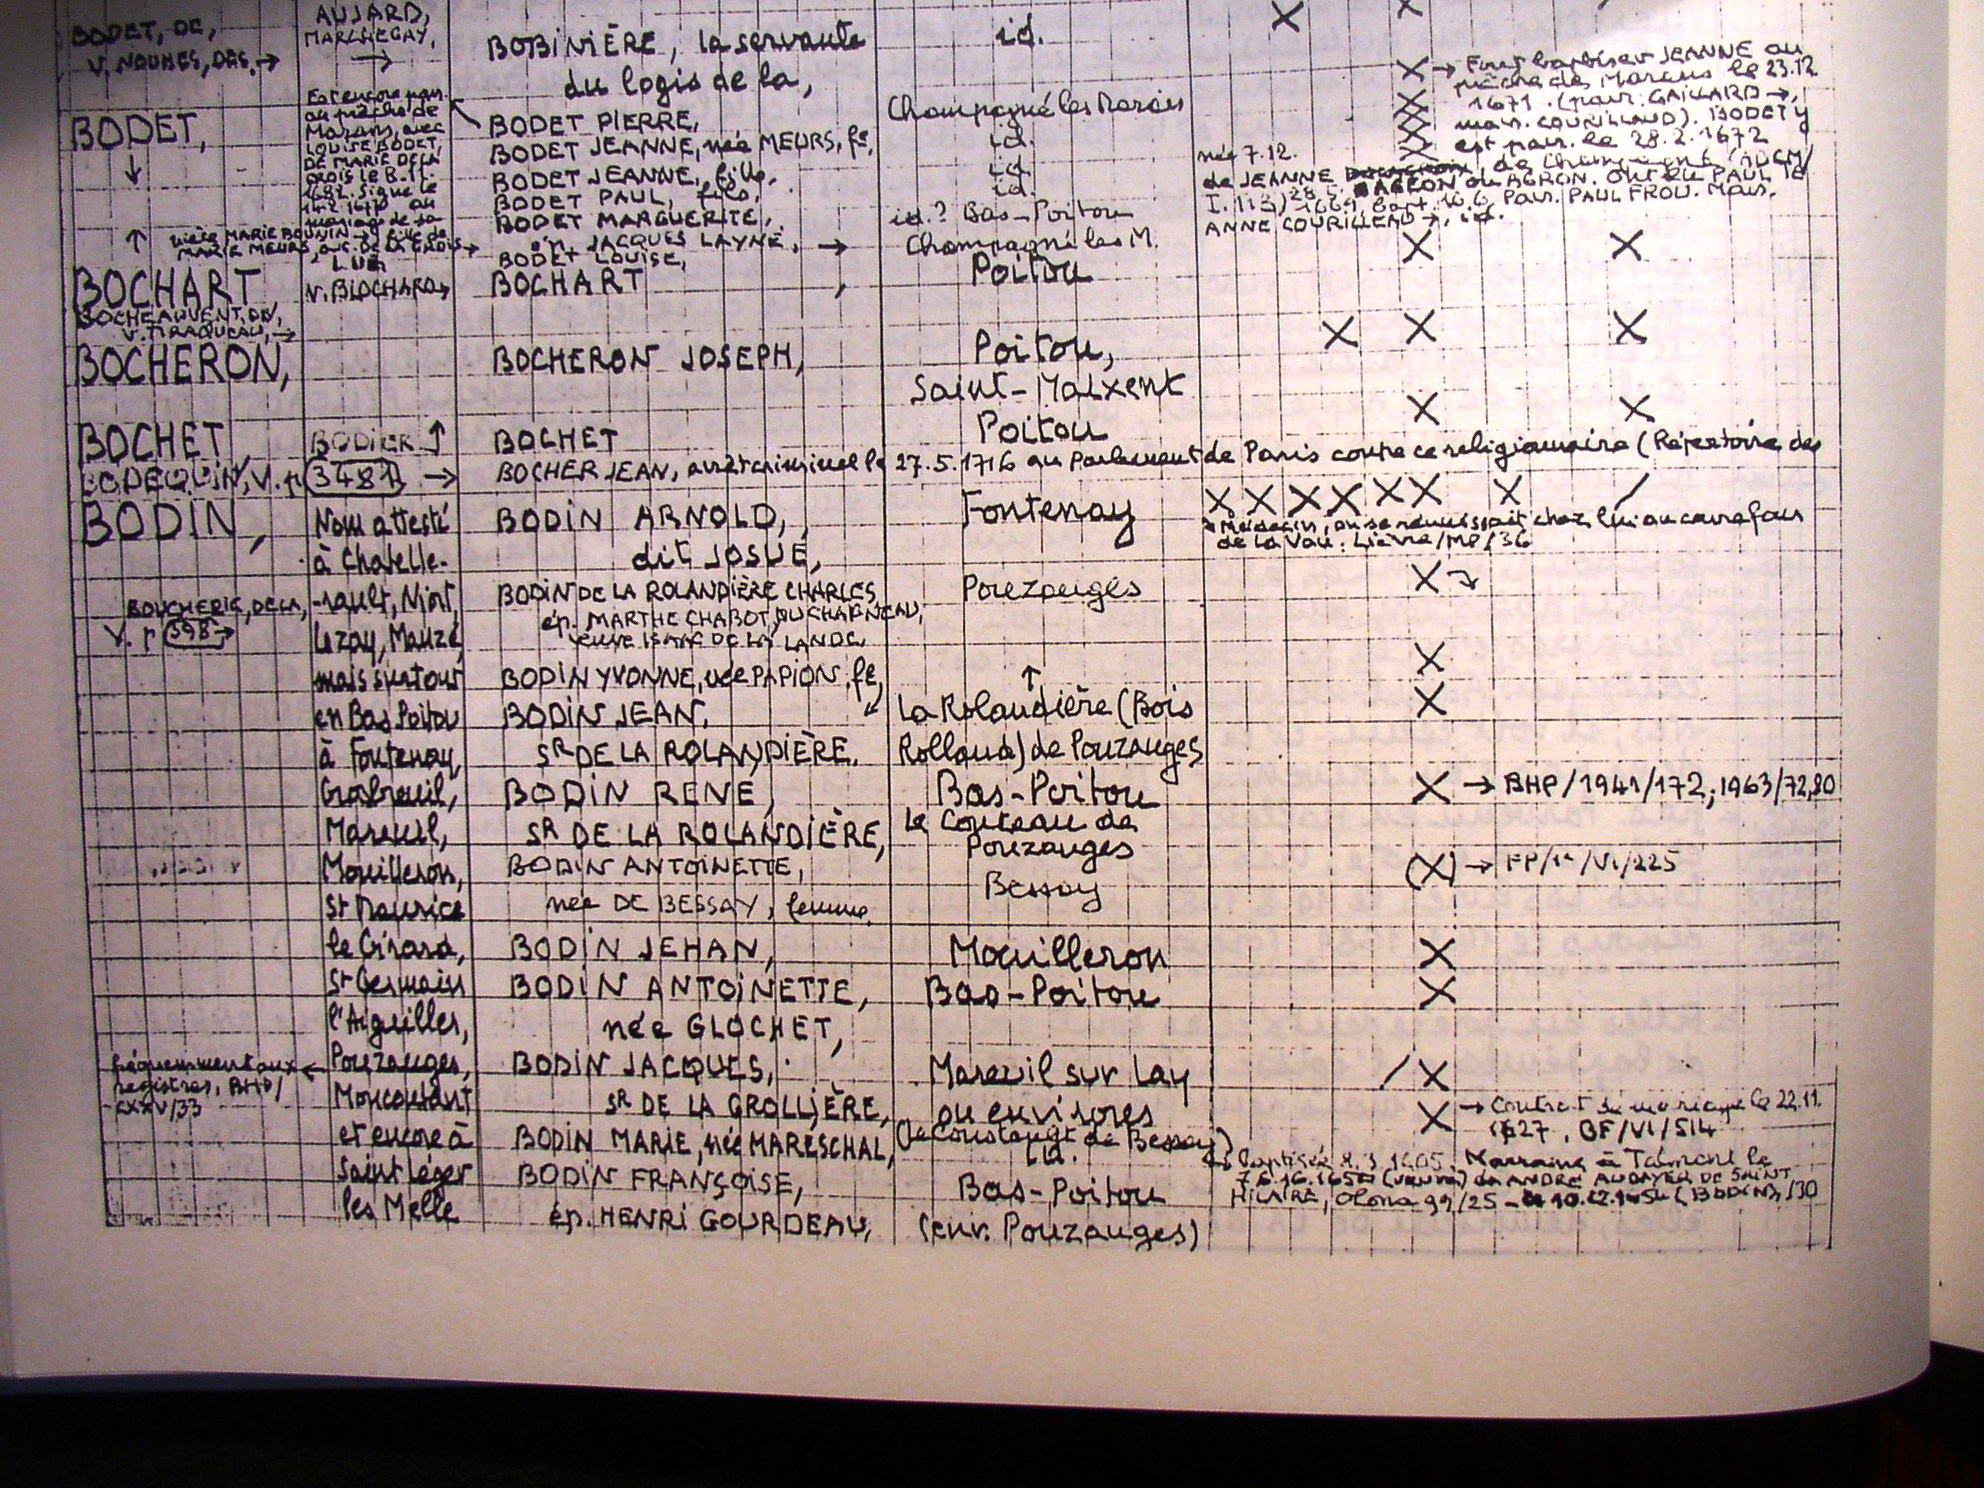 BODET, DE,
V. NOUHES, DES, →
AUJARD,
MARCHEGAY,
→
BOBINIÈRE, la servante
du logis de la,
id.
X X
BODET,
↓
Est encore parr.
au prêche de
Marans, avec
LOUISE BODET,
DE MARIE DE LA
CROIS le 8.11.
1682. Signe le
mariage de sa
nièce MARIE BOUNIN → fille de
MARIE MEURS, DE LA CROIS →
BODET PIERRE,
BODET JEANNE, née MEURS, fe,
BODET JEANNE, fille,
BODET PAUL, fils,
BODET MARGUERITE,
ép. JACQUES LAYNÉ, →
BODET LOUISE,
Champagné les Marais
id.
id.
id.
id.? Bas-Poitou
Champagné les M.
X → Font baptiser JEANNE au
prêche de Marans le 23.12
1671. (parr. GAILLARD →,
marr. COURILLAUD). BODET y
est parr. le 28.2.1672
née 7.12.
de JEANNE AGRON ou AGRON. Ont eu PAUL le
1669 bapt. 10.6 Parr. PAUL FROU. Marr.
ANNE COURILLEAU →, id.
BOCHART,
V. BLOCHARD →
BOCHART,
Poitou
X X
BOCHEAUVENT, DE,
V. TIRAQUEAU, →
BOCHERON,
BOCHERON JOSEPH,
Poitou,
Saint-Maixent
X X X
BOCHET
BODIER ↑
BOCHET
Poitou
X X
BODEQUIN, V. p 3481 →
BOCHER JEAN, arrêt criminel le 27.5.1716 au Parlement de Paris contre ce religionnaire (Répertoire des
BODIN,
Nom attesté
à Chatelle-
-rault, Niort,
Lezay, Mauzé,
mais surtout
en Bas Poitou
à Fontenay,
Grosbreuil,
Mareuil,
Mouilleron,
St Maurice
le Girard,
St Germain
l'Aiguiller,
Pouzauges,
Moncoutant
et encore à
Saint Léger
les Melle
BOUCHERIE, DE LA,
V. p 398 →
fréquemment aux ←
registres, BHP/
XXXV/33
BODIN ARNOLD,
dit JOSUÉ,
Fontenay
X X X X X X X /
Médecin, on se réunissait chez lui au carrefour
de la Vau: Lièvre/MP/36
BODIN DE LA ROLANDIÈRE CHARLES
ép. MARTHE CHABOT, DU CHAIGNEAU,
veuve ISAAC DE LA LANDE
Pouzauges
X
BODIN YVONNE, née PAPION, fe,
X
BODIN JEAN,
SR DE LA ROLANDIÈRE.
↑
La Rolandière (Bois
Rolland) de Pouzauges
X
BODIN RENÉ,
SR DE LA ROLANDIÈRE,
Bas-Poitou
Le Couteau de
Pouzauges
X → BHP/1941/172; 1963/72,80
BODIN ANTOINETTE,
née DE BESSAY, femme
Bessay
(X) → FP/1e/VI/225
BODIN JEHAN,
Mouilleron
X
BODIN ANTOINETTE,
née GLOCHET,
Bas-Poitou
X
BODIN JACQUES,
SR DE LA GROLLIÈRE,
Mareuil sur Lay
ou environs
/ X
BODIN MARIE, née MARESCHAL,
(Le Coustaugt de Bessay)
id.
X → Contrat de mariage le 22.11.
1627, BF/VI/514
BODIN FRANÇOISE,
ép. HENRI GOURDEAU,
Bas-Poitou
(env. Pouzauges)
1605. Marraine à Talmont le
(veuve) de ANDRÉ AUDAYER DE SAINT
HILAIRE, Olona 99/25 - (BODIN)/30